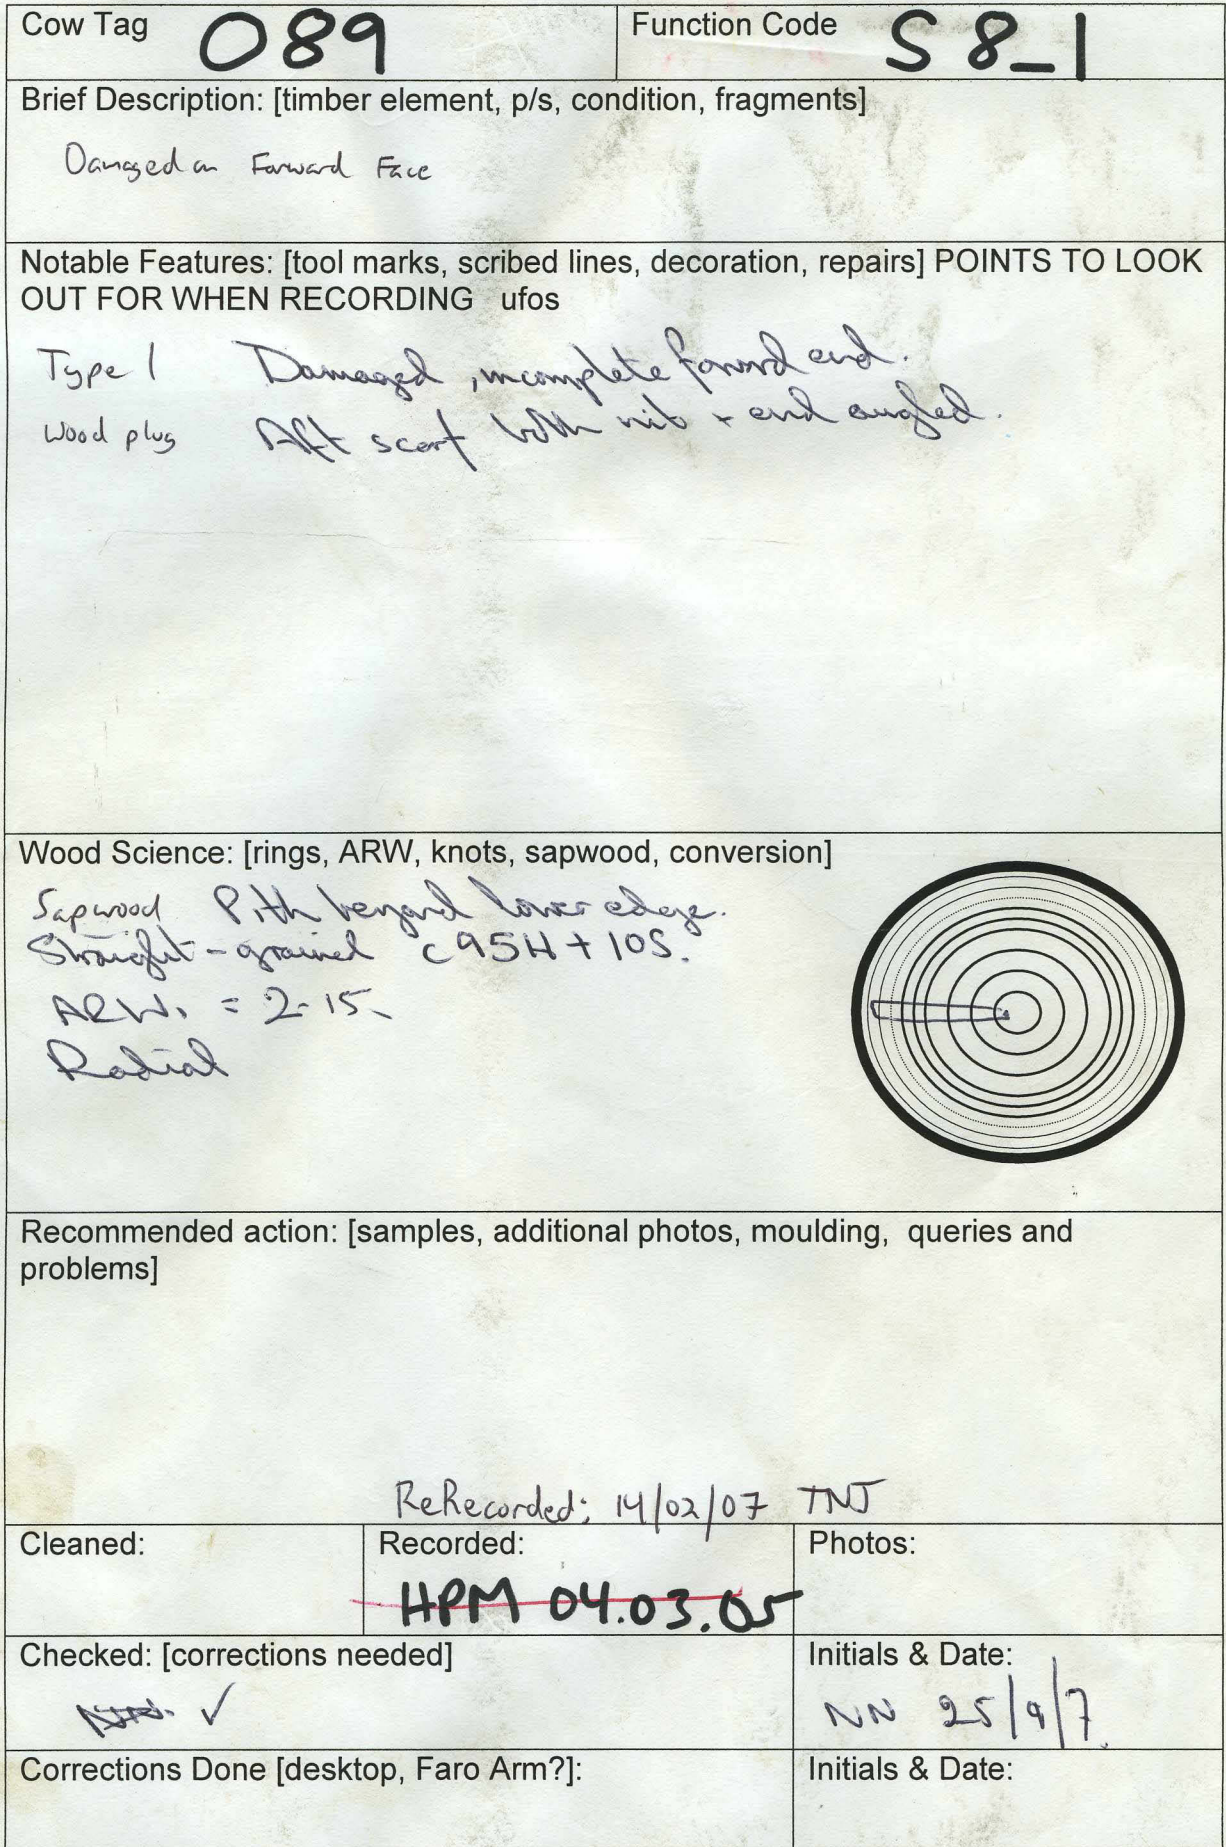 Cow Tag 089 Function Code S8_1
Brief Description: [timber element, p/s, condition, fragments]
Damaged on Forward Face
Notable Features: [tool marks, scribed lines, decoration, repairs] POINTS TO LOOK
OUT FOR WHEN RECORDING ufos
Type 1 Damaged, incomplete forward end.
Wood plug Aft scarf both nib + end angled.
Wood Science: [rings, ARW, knots, sapwood, conversion]
Sapwood Pith beyond lower edge.
Straight-grained c95H + 10S.
ARW. = 2.15
Radial
Recommended action: [samples, additional photos, moulding, queries and
problems]
ReRecorded: 14/02/07 TNJ
Cleaned: Recorded: Photos:
HPM 04.03.05
Checked: [corrections needed] Initials & Date:
✓ NN 25/9/7
Corrections Done [desktop, Faro Arm?]: Initials & Date: